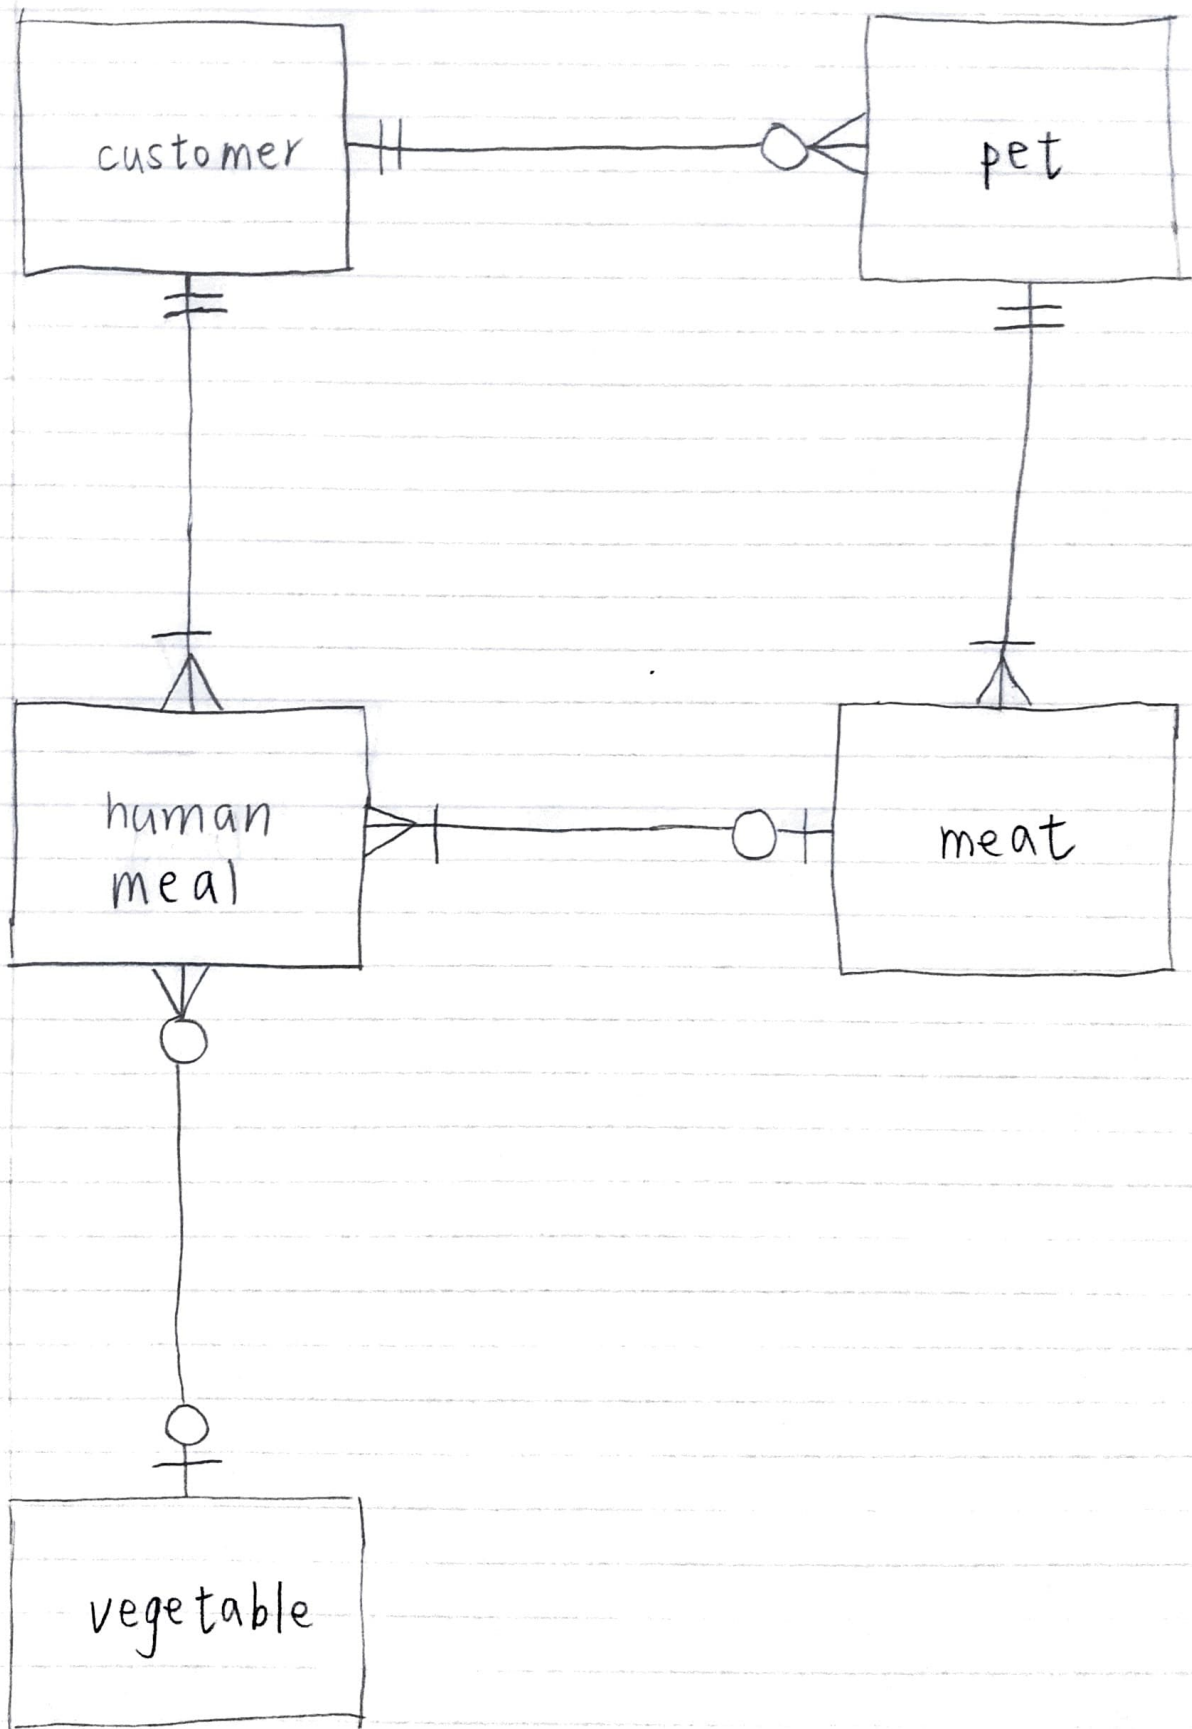 customer
pet
human
meal
meat
vegetable